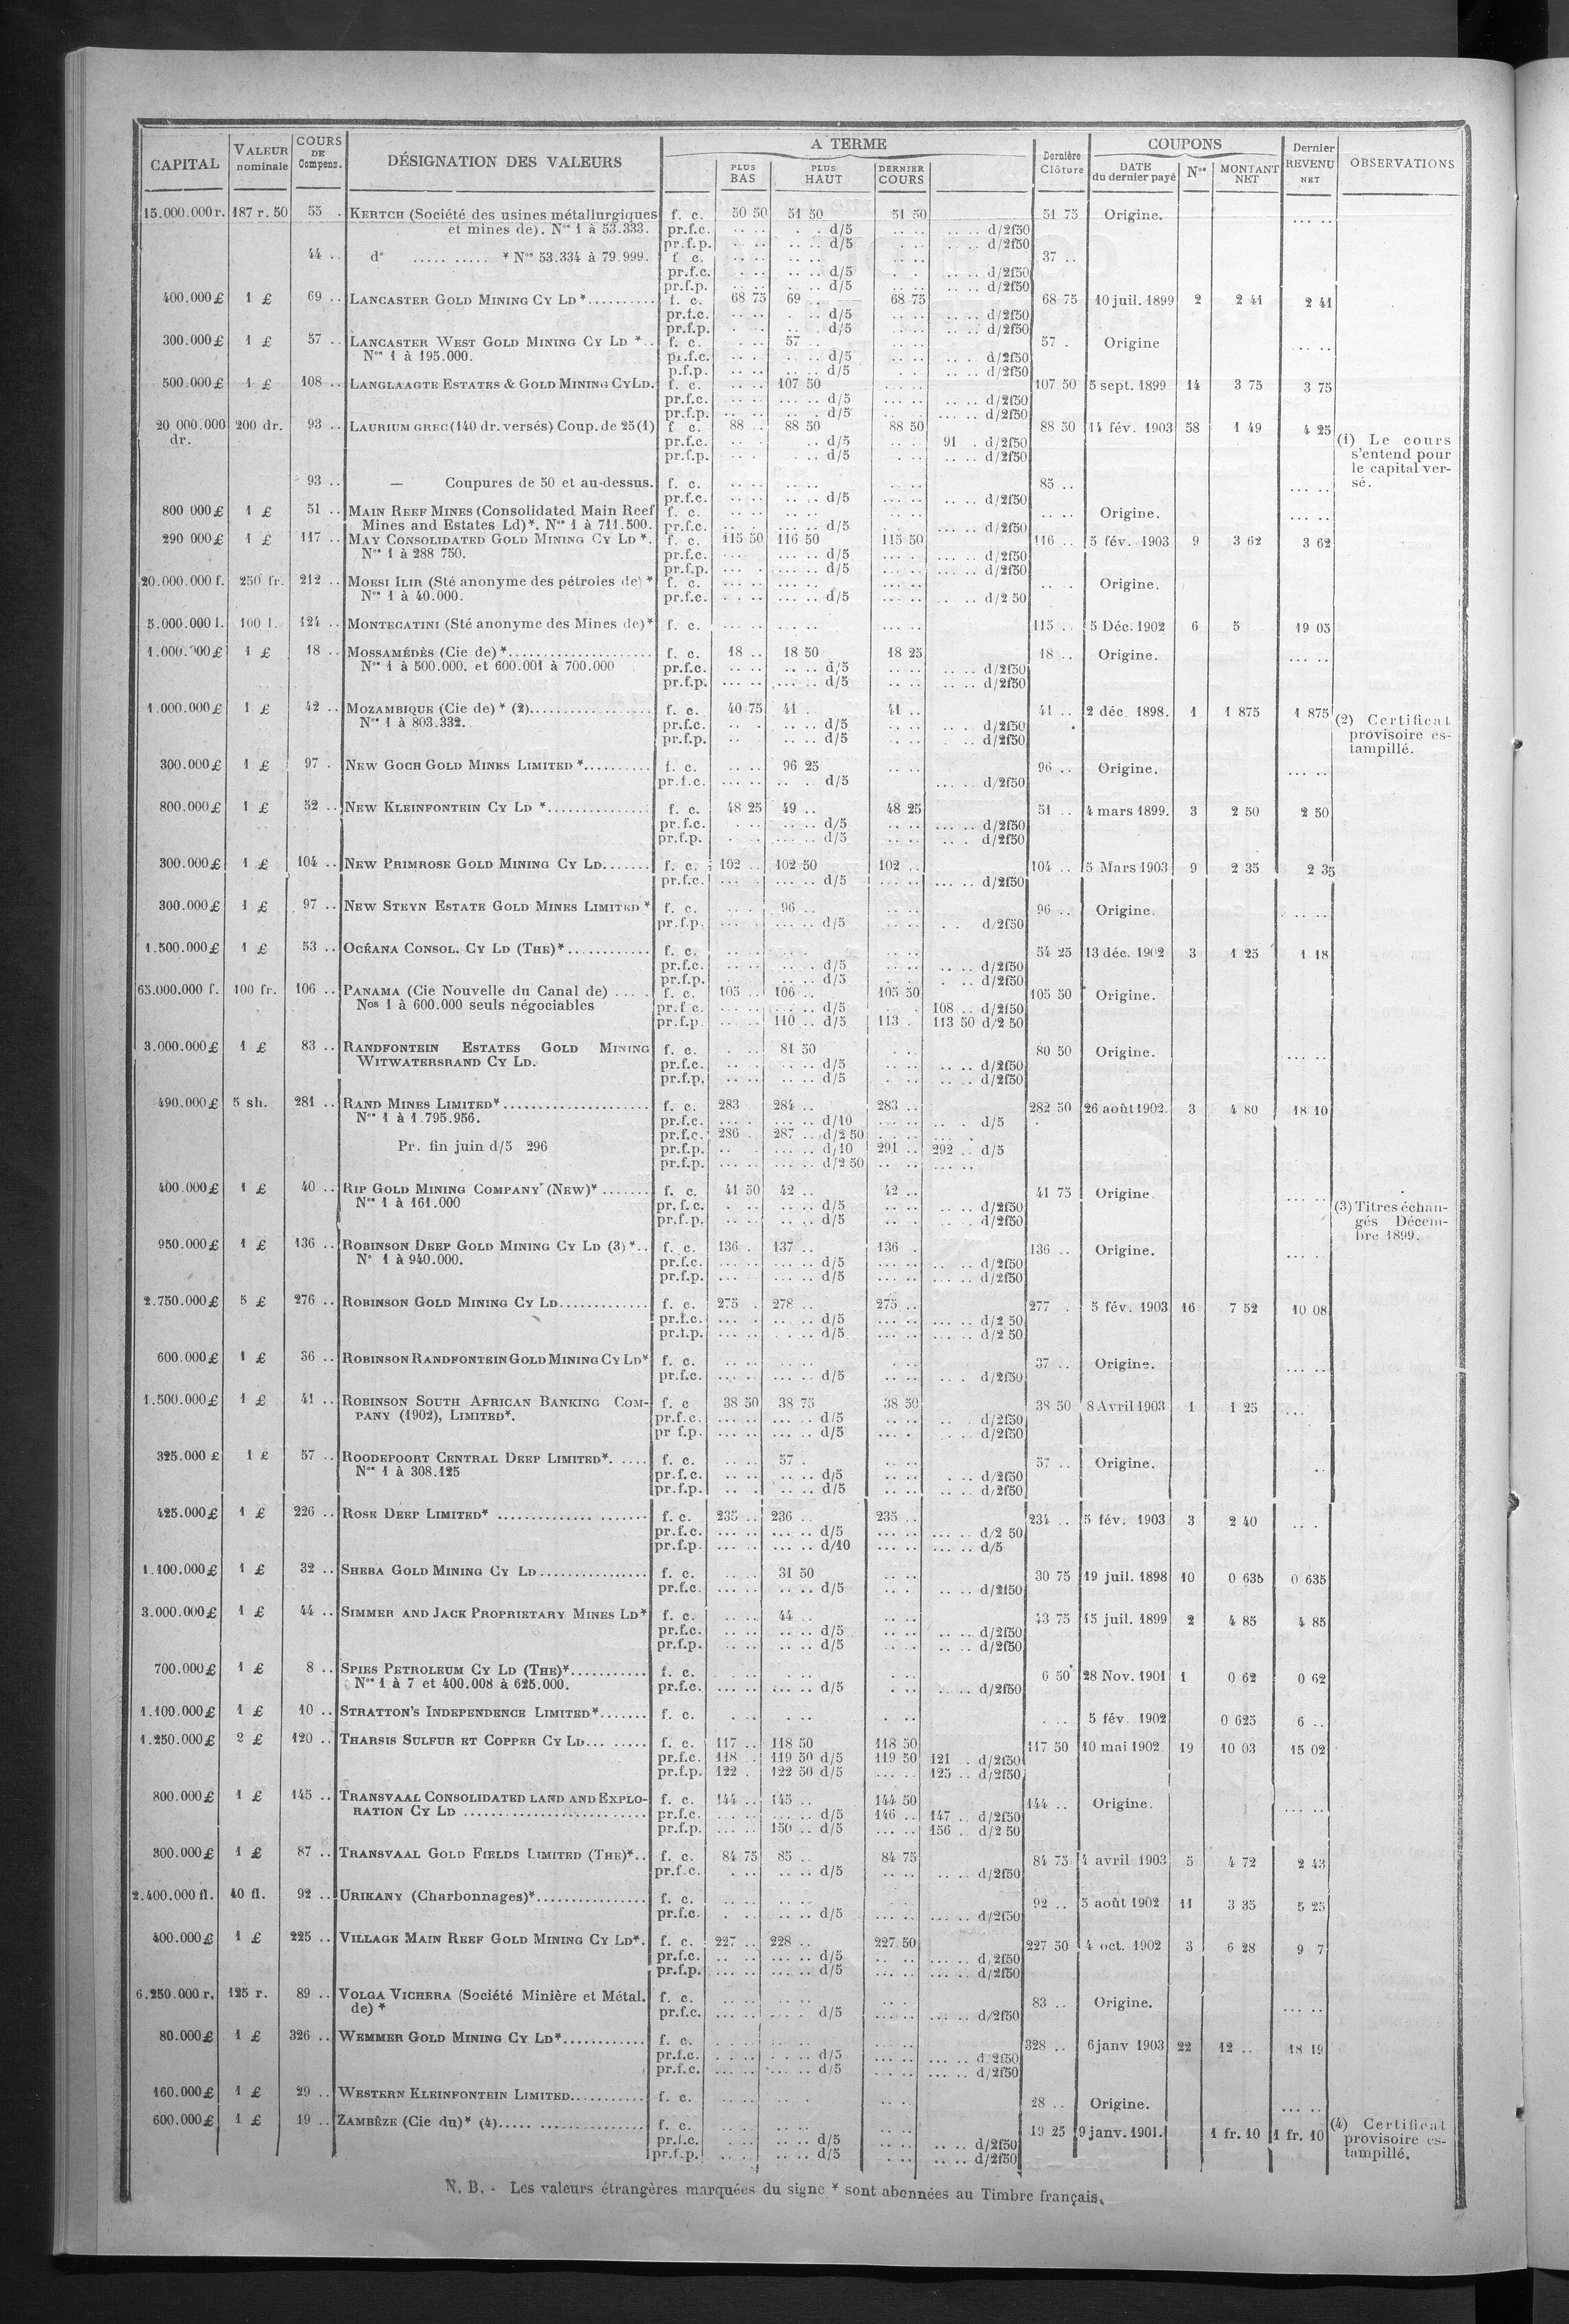 CAPITAL VALEUR nominale COURS DE Compens. DÉSIGNATION DES VALEURS A TERME PLUS BAS PLUS HAUT DERNIER COURS Dernière Clôture COUPONS DATE du dernier payé Nos MONTANT NET Dernier REVENU NET OBSERVATIONS
15.000.000 r. 187 r. 50 55 . KERTCH (Société des usines métallurgiques f. c. 50 50 51 50 51 50 51 75 Origine. ... ..
et mines de). Nos 1 à 53.333. pr.f.c. d/5 d/2f50
pr.f.p. d/5 d/2f50
44 .. do ..... ..... * Nos 53.334 à 79.999. f. c. 37 ..
pr.f.c. d/5 d/2f50
pr.f.p. d/5 d/2f50
400.000 £ 1 £ 69 .. LANCASTER GOLD MINING CY LD *.......... f. c. 68 75 69 .. 68 75 68 75 10 juil. 1899 2 2 41 2 41
pr.f.c. d/5 d/2f50
pr.f.p. d/5 d/2f50
300.000 £ 1 £ 57 .. LANCASTER WEST GOLD MINING CY LD *.. f. c. 57 . 57 . Origine ... ..
Nos 1 à 195.000. pr.f.c. d/5 d/2f50
p.f.p. d/5 d/2f50
500.000 £ 1 £ 108 .. LANGLAAGTE ESTATES & GOLD MINING CY LD. f. c. 107 50 107 50 5 sept. 1899 14 3 75 3 75
pr.f.c. d/5 d/2f50
pr.f.p. d/5 d/2f50
20 000.000 dr. 200 dr. 93 .. LAURIUM GREC (140 dr. versés) Coup. de 25 (1) f. c. 88 .. 88 50 88 50 88 50 14 fév. 1903 58 1 49 4 25
pr.f.c. d/5 91 . d/2f50 (1) Le cours
pr.f.p. d/5 d/2f50 s'entend pour
le capital ver-
93 .. — Coupures de 50 et au-dessus. f. c. 85 .. ... .. sé.
pr.f.c. d/5 d/2f50
800 000 £ 1 £ 51 .. MAIN REEF MINES (Consolidated Main Reef f. c. Origine. ... ..
Mines and Estates Ld)*. Nos 1 à 711.500. pr.f.c. d/5 d/2f50
290 000 £ 1 £ 117 .. MAY CONSOLIDATED GOLD MINING CY LD *. f. c. 115 50 116 50 115 50 116 .. 5 fév. 1903 9 3 62 3 62
Nos 1 à 288 750. pr.f.c. d/5 d/2f50
pr.f.p. d/5 d/2f50
20.000.000 f. 250 fr. 212 .. MOESI ILIR (Sté anonyme des pétroles de) * f. c. Origine.
Nos 1 à 40.000. pr.f.c. d/5 d/2 50
5.000.000 l. 100 l. 124 .. MONTECATINI (Sté anonyme des Mines de)* f. c. 115 .. 5 Déc. 1902 6 5 19 05
1.000.000 £ 1 £ 18 .. MOSSAMÉDÈS (Cie de) *.................... f. c. 18 .. 18 50 18 25 18 .. Origine. ... ..
Nos 1 à 500.000. et 600.001 à 700.000 pr.f.c. d/5 d/2f50
pr.f.p. d/5 d/2f50
1.000.000 £ 1 £ 42 .. MOZAMBIQUE (Cie de) * (2)................. f. c. 40 75 41 . 41 .. 41 .. 2 déc. 1898. 1 1 875 1 875
Nos 1 à 803.332. pr.f.c. d/5 d/2f50 (2) Certificat
pr.f.p. d/5 d/2f50 provisoire es-
tampillé.
300.000 £ 1 £ 97 . NEW GOCH GOLD MINES LIMITED *.......... f. c. 96 25 96 .. Origine. ... ..
pr.f.c. d/5 d/2f50
800.000 £ 1 £ 52 .. NEW KLEINFONTEIN CY LD *............... f. c. 48 25 49 .. 48 25 51 .. 4 mars 1899. 3 2 50 2 50
pr.f.c. d/5 d/2f50
pr.f.p. d/5 d/2f50
300.000 £ 1 £ 104 .. NEW PRIMROSE GOLD MINING CY LD....... f. c. 102 .. 102 50 102 .. 104 .. 5 Mars 1903 9 2 35 2 35
pr.f.c. d/5 d/2f50
300.000 £ 1 £ 97 .. NEW STEYN ESTATE GOLD MINES LIMITED * f. c. 96 .. 96 .. Origine.
pr.f.p. d/5 d/2f50
1.500.000 £ 1 £ 53 .. OCÉANA CONSOL. CY LD (THE)*............ f. c. 54 25 13 déc. 1902 3 1 25 1 18
pr.f.c. d/5 d/2f50
pr.f.p. d/5 d/2f50
65.000.000 f. 100 fr. 106 .. PANAMA (Cie Nouvelle du Canal de) .... f. c. 105 .. 106 .. 105 50 105 50 Origine.
Nos 1 à 600.000 seuls négociables pr.f.c. d/5 108 .. d/2f50
pr.f.p. 110 .. d/5 113 . 113 50 d/2 50
3.000.000 £ 1 £ 83 .. RANDFONTEIN ESTATES GOLD MINING f. c. 81 50 80 50 Origine. ... ..
WITWATERSRAND CY LD. pr.f.c. d/5 d/2f50
pr.f.p. d/5 d/2f50
490.000 £ 5 sh. 281 .. RAND MINES LIMITED*..................... f. c. 283 284 .. 283 .. 282 50 26 août 1902. 3 4 80 18 10
Nos 1 à 1.795.956. pr.f.c. d/10 d/5
pr.f.c. 286 .. 287 .. d/2 50
Pr. fin juin d/5 296 pr.f.p. d/10 291 .. 292 .. d/5
pr.f.p. d/2 50
400.000 £ 1 £ 40 .. RIP GOLD MINING COMPANY (NEW)* ....... f. c. 41 50 42 .. 42 .. 41 75 Origine. ... ..
Nos 1 à 161.000 pr.f.c. d/5 d/2f50 (3) Titres échan-
pr.f.p. d/5 d/2f50 gés Décem-
bre 1899.
950.000 £ 1 £ 136 .. ROBINSON DEEP GOLD MINING CY LD (3) *.. f. c. 136 . 137 .. 136 . 136 .. Origine.
No 1 à 940.000. pr.f.c. d/5 d/2f50
pr.f.p. d/5 d/2f50
2.750.000 £ 5 £ 276 .. ROBINSON GOLD MINING CY LD............. f. c. 275 . 278 .. 275 .. 277 . 5 fév. 1903 16 7 52 10 08
pr.f.c. d/5 d/2 50
pr.f.p. d/5 d/2 50
600.000 £ 1 £ 36 .. ROBINSON RANDFONTEIN GOLD MINING CY LD* f. c. 37 .. Origine. ... ..
pr.f.c. d/5 d/2f50
1.500.000 £ 1 £ 41 .. ROBINSON SOUTH AFRICAN BANKING COM- f. c 38 50 38 75 38 50 38 50 8 Avril 1903 1 1 25 ...
PANY (1902), LIMITED*. pr.f.c. d/5 d/2f50
pr f.p. d/5 d/2f50
325.000 £ 1 £ 57 .. ROODEPOORT CENTRAL DEEP LIMITED*. ..... f. c. 57 . 57 .. Origine.
Nos 1 à 308.125 pr.f.c. d/5 d/2f50
pr.f.p. d/5 d/2f50
425.000 £ 1 £ 226 .. ROSE DEEP LIMITED* .............. ....... f. c. 235 .. 236 .. 235 .. 234 .. 5 fév. 1903 3 2 40
pr.f.c. d/5 d/2 50
pr.f.p. d/10 d/5
1.100.000 £ 1 £ 32 .. SHEBA GOLD MINING CY LD............... f. c. 31 50 30 75 19 juil. 1898 10 0 635 0 635
pr.f.c. d/5 d/2f50
3.000.000 £ 1 £ 44 .. SIMMER AND JACK PROPRIETARY MINES LD* f. c. 44 .. 43 75 15 juil. 1899 2 4 85 4 85
pr.f.c. d/5 d/2f50
pr.f.p. d/5 d/2f50
700.000 £ 1 £ 8 .. SPIES PETROLEUM CY LD (THE)*........... f. c. 6 50 28 Nov. 1901 1 0 62 0 62
Nos 1 à 7 et 400.008 à 625.000. pr.f.c. d/5 d/2f50
1.100.000 £ 1 £ 10 .. STRATTON'S INDEPENDENCE LIMITED*....... f. c. 5 fév. 1902 0 625 6 ..
1.250.000 £ 2 £ 120 .. THARSIS SULFUR ET COPPER CY LD... ...... f. c. 117 .. 118 50 118 50 117 50 10 mai 1902 19 10 03 15 02
pr.f.c. 118 .. 119 50 d/5 119 50 121 . d/2f50
pr.f.p. 122 . 122 50 d/5 125 .. d/2f50
800.000 £ 1 £ 145 .. TRANSVAAL CONSOLIDATED LAND AND EXPLO- f. c. 144 .. 145 .. 144 50 144 .. Origine. ... ..
RATION CY LD ........................... pr.f.c. d/5 146 .. 147 .. d/2f50
pr.f.p. 150 .. d/5 156 .. d/2 50
300.000 £ 1 £ 87 .. TRANSVAAL GOLD FIELDS LIMITED (THE)*.. f. c. 84 75 85 .. 84 75 84 75 4 avril 1903 5 4 72 2 43
pr.f.c. d/5 d/2f50
2.400.000 fl. 40 fl. 92 .. URIKANY (Charbonnages)*................ f. c. 92 .. 5 août 1902 11 3 35 5 25
pr.f.c. d/5 d/2f50
400.000 £ 1 £ 225 .. VILLAGE MAIN REEF GOLD MINING CY LD*. f. c. 227 .. 228 .. 227 50 227 50 4 oct. 1902 3 6 28 9 7
pr.f.c. d/5 d/2f50
pr.f.p. d/5 d/2f50
6.250.000 r. 125 r. 89 .. VOLGA VICHERA (Société Minière et Métal. f. c. 83 .. Origine. ... ..
de) * pr.f.c. d/5 d/2f50
80.000 £ 1 £ 326 .. WEMMER GOLD MINING CY LD*............ f. c. 328 .. 6 janv 1903 22 12 .. 18 19
pr.f.c. d/5 d/2f50
pr.f.c. d/5 d/2f50
160.000 £ 1 £ 29 .. WESTERN KLEINFONTEIN LIMITED........... f. c. 28 .. Origine. ... ..
600.000 £ 1 £ 19 .. ZAMBÈZE (Cie du)* (4)..... ............... f. c. 19 25 9 janv. 1901. 1 fr. 10 1 fr. 10 (4) Certificat
pr.f.c. d/5 d/2f50 provisoire es-
pr.f.p. d/5 d/2f50 tampillé.
N. B. - Les valeurs étrangères marquées du signe * sont abonnées au Timbre français.